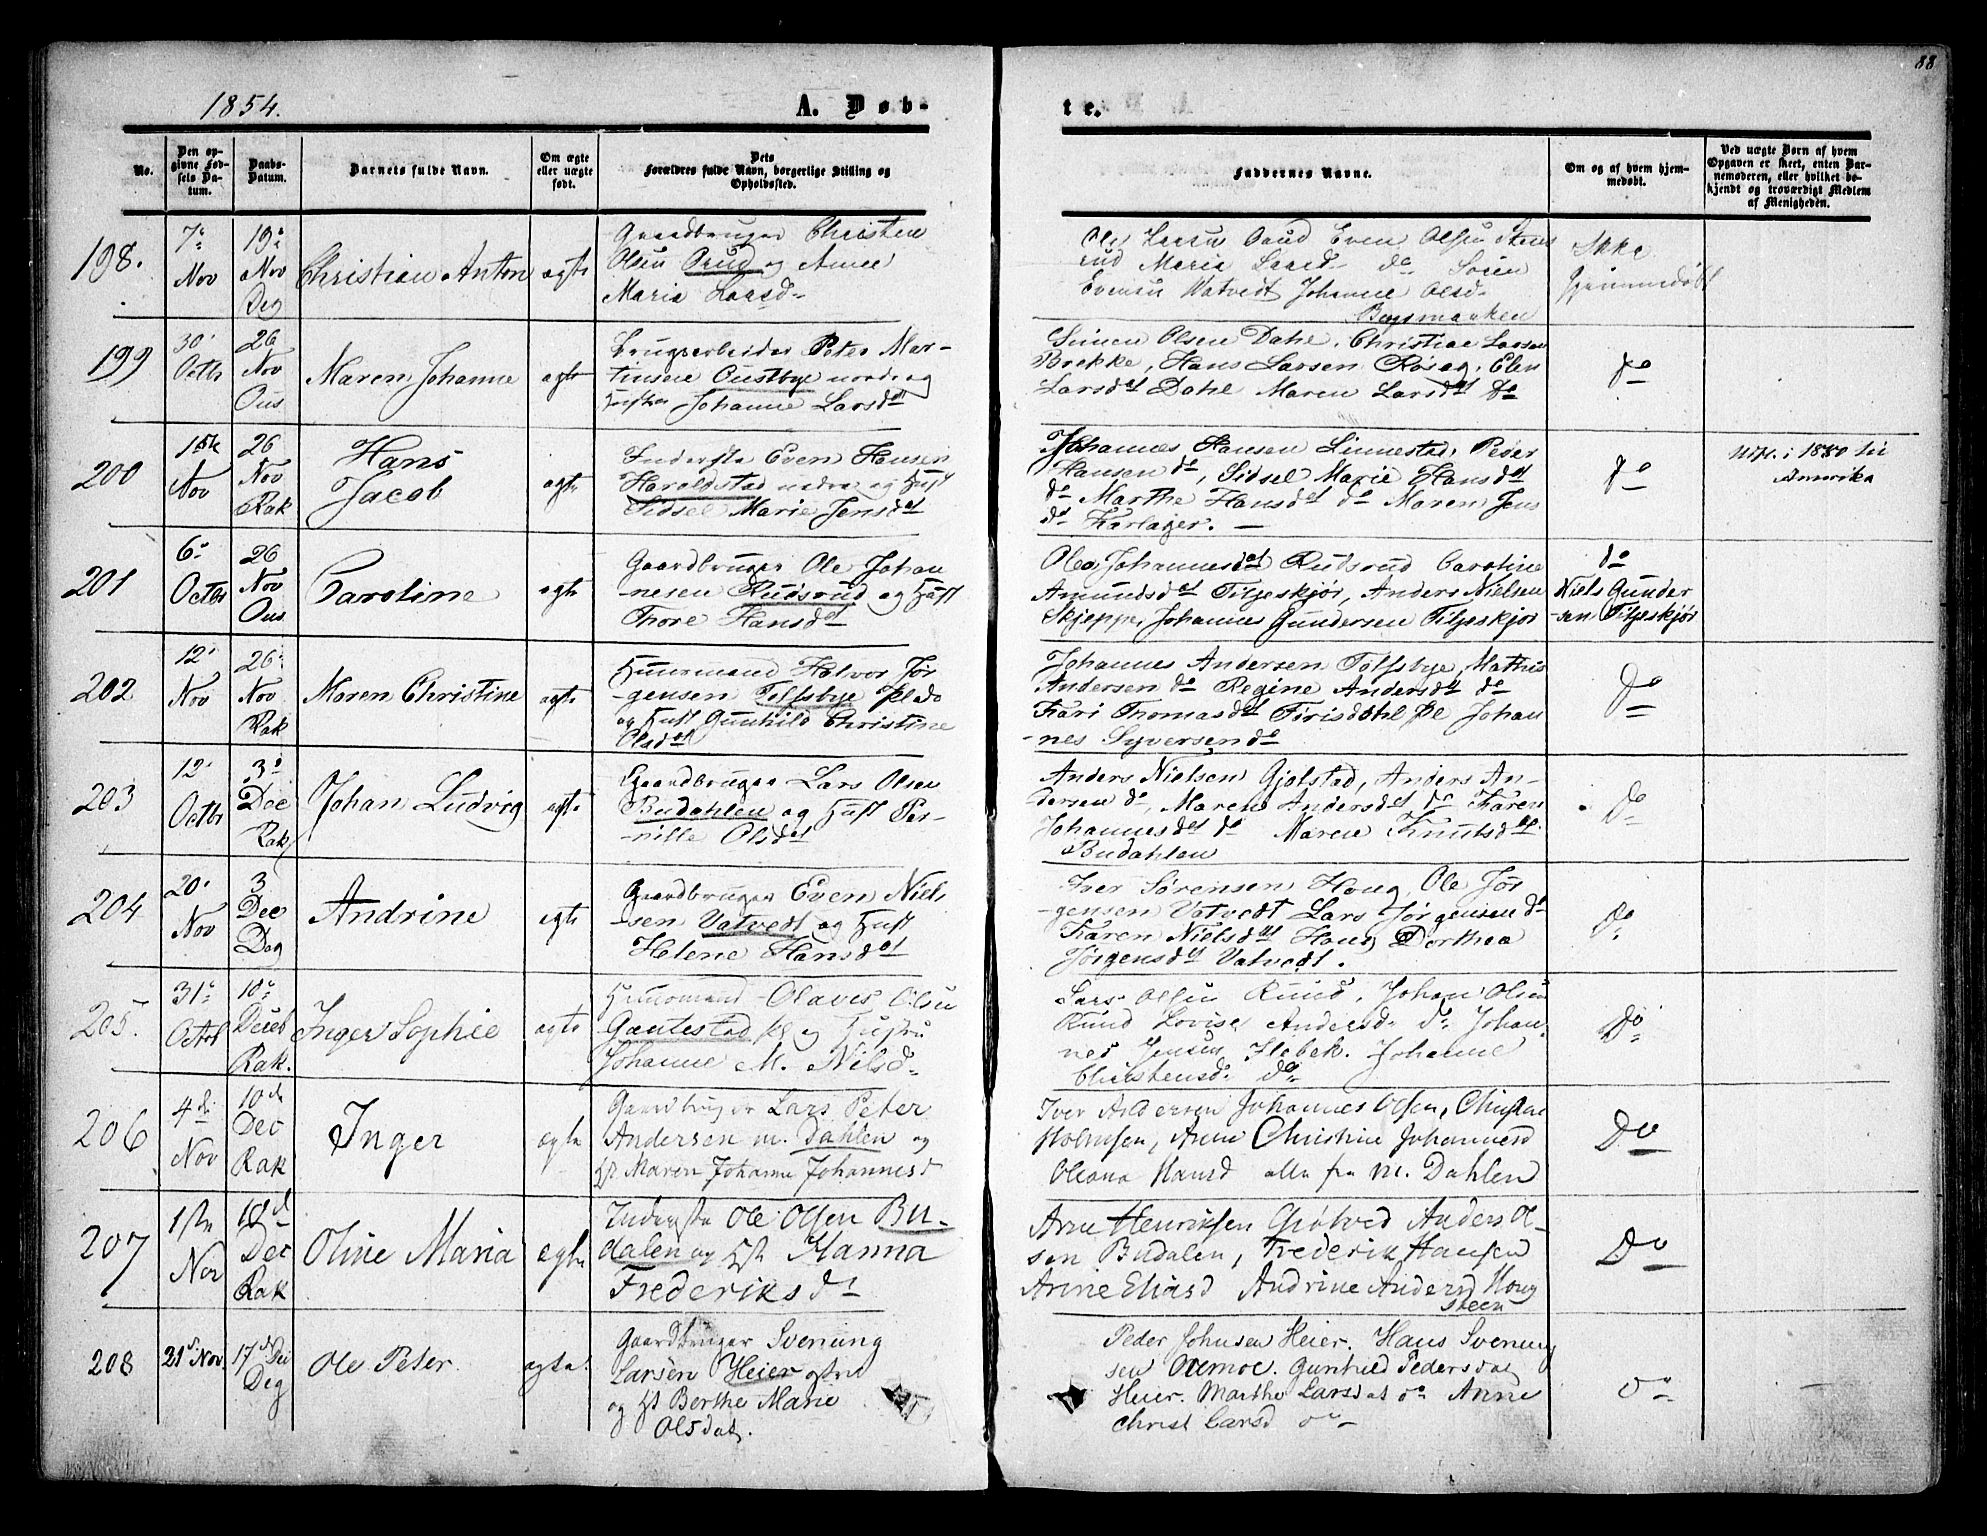 88
1854.
A. Døb-
te.
No.
Den op-
givne Fød-
sels Da-
tum.
Daabs-
Datum.
Barnets fulde Navn.
Om ægte
eller uægte
født.
Dets
Forældres fulde Navn, borgerlige Stilling og
Opholdssted.
Faddernes Navne.
Om og af hvem hjem-
medøbt.
Ved uægte Børn af hvem
Opgaven er skeet, enten Bar-
nemoderen, eller hvilket be-
kjendt og troværdigt Medlem
af Menigheden.
198.
7de
Nov
19de
Nov
Deg
Christian Anton
ægte
Gaardbruger Christen
Olsen Prud og Anne
Maria Larsd.
Ole Larsen Even Olsen
rud Maria Larsd do Søren
Evensen Vatvedt Johanne Olsd.
Ikke
hjemmedøbt
199
30
Octbr
26
Nov
Ous
Maren Johanne
ægte
Brugsarbeider Peter Mar-
tinsen Oustbye nordre og
Hustru Johanne Larsdat
Simen Olsen Dahl. Christian Larsen
Brekke, Hans Larsen Røsæg, Elen
Larsdat Dahl Maren Larsdat do
do
200
1ste
Nov
26
Nov
Rak
Hans
Jacob
ægte
Inderste Even Hansen
Haroldstad nedre og Hust
Sidsel Marie Jensdat
Johannes Hansen Linnestad, Peder
Hansen do, Sidsel Marie Hansdat
do Marthe Hansdat do Maren Jens
dat Karlager. —
do
Utfl. i 1880 til
Amerika
201
6
Octbr
26
Nov
Ous
Caroline
ægte
Gaardbruger Ole Johan
nesen Rudsrud og Hust
Thore Hansdat
Olea Johannesdat Rudsrud Caroline
Amundsdat Tiljeskjør, Anders Nielsen
Skjeppe, Johannes Gundersen Tiljeskjør
do
Niels Gunder
-sen Tiljeskjør
202
12
Nov
26
Nov
Rak
Maren Christine
ægte
Huusmand Halvor Jør
-gensen Tolfsbye
og Hust Gunhild Christine
Olsdat
Johannes Andersen Tolfsbye, Mathis
Andersen do Regine Andersdat do
Kari Thomasdat Johan
-nes Syversen do
Do
203
12
Octbr
3
Dec
Rak
Johan Ludvig
ægte
Gaardbruger Lars Olsen
Budahlen og Hust Per-
-nille Olsdat
Anders Nielsen Gjølstad, Anders An-
dersen do, Maren Andersdat do Karen
Johannesdat do Maren Knutsdat
Budahlen
Do
204
20
Nov
3
Dec
Deg
Andrine
ægte
Gaardbruger Even Niel-
-sen Vatvedt og Hust
Helene Hansdat
Iver Sørensen Houg, Ole Jør
-gensen Vatvedt Lars Jørgensen do
Karen Nielsdat Houg Dorthea
Jørgensdat Vatvedt.
Do
205.
31
Octbr
10
Deceb
Rak.
Inger Sophie
ægte
Huusmand Olaves Olsen
Gautestad pl og Hustru
Johanne M. Nilsd.
Lars Olsen Ruud, Johan Olsen
Ruud Lovise Andersd. do. Johan-
nes Jensen Flebek. Johanne
Christensd. do
Do
206
4de
Nov
10de
Dec
Rak
Inger
ægte
Gaardbruger Lars Peter
Andersen m. Dahlen og
Hst Maren Johanne Johannesd
Iver Andersen Johannes Olsen, Christian
Anne Christine Johannesd
Oleana Hansd alle fra m. Dahlen
Do
207
1ste
Nov
10de
Dec
Rak
Oline Maria
ægte
Inderste Ole Olsen Bu-
dalen og Hst Manna
Frederiksd.
Arne Henriksen Grøtved Anders Ol-
sen Budalen, Frederik Hansen
Anne Eliasd Andrine Andersd Houg
steen
Do
208
21de Nov.
17de Dec
Deg
Ole Peter.
ægte.
Gaardbruger Svenung
Larsen Heier østre
og Hst Berthe Marie
Olsdat.
Peder Johnsen Heier. Hans Svenung
sen Oremoe. Gunhild Pedersdat
Heier. Marthe Larsdat do Anne
Christ Larsd do
Do